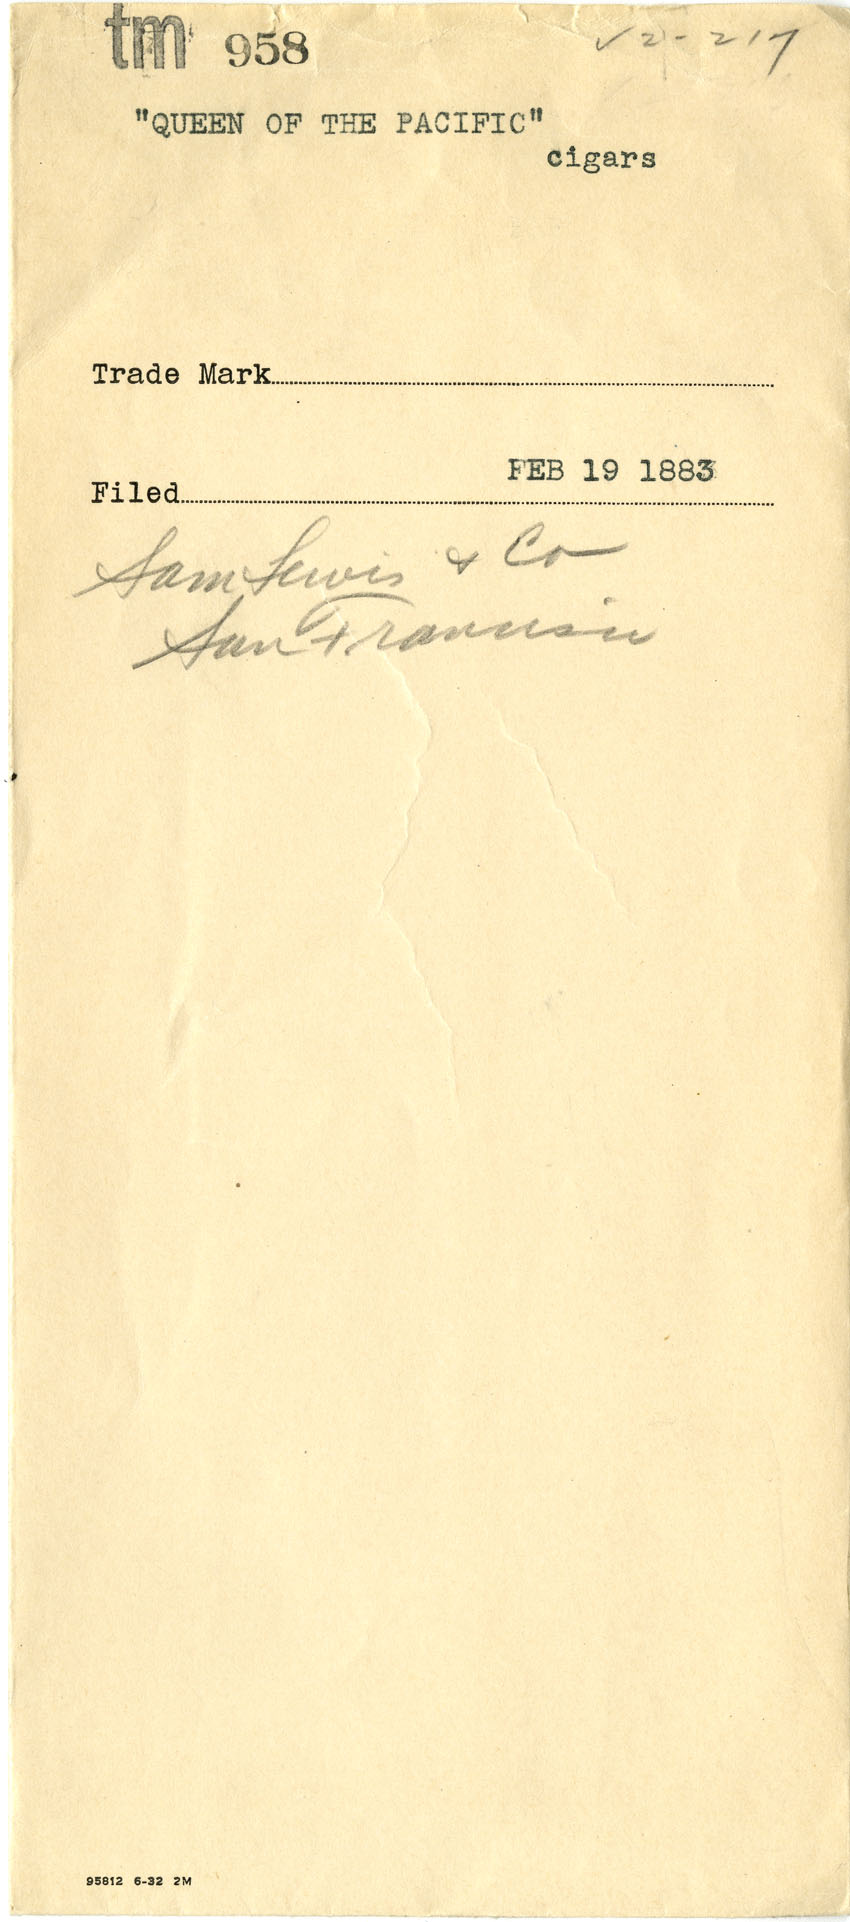 tm 958
√2-217
"QUEEN OF THE PACIFIC"
cigars
Trade Mark
FEB 19 1883
Filed
Sam Lewis & Co
San Francisco
95812 6-32 2M